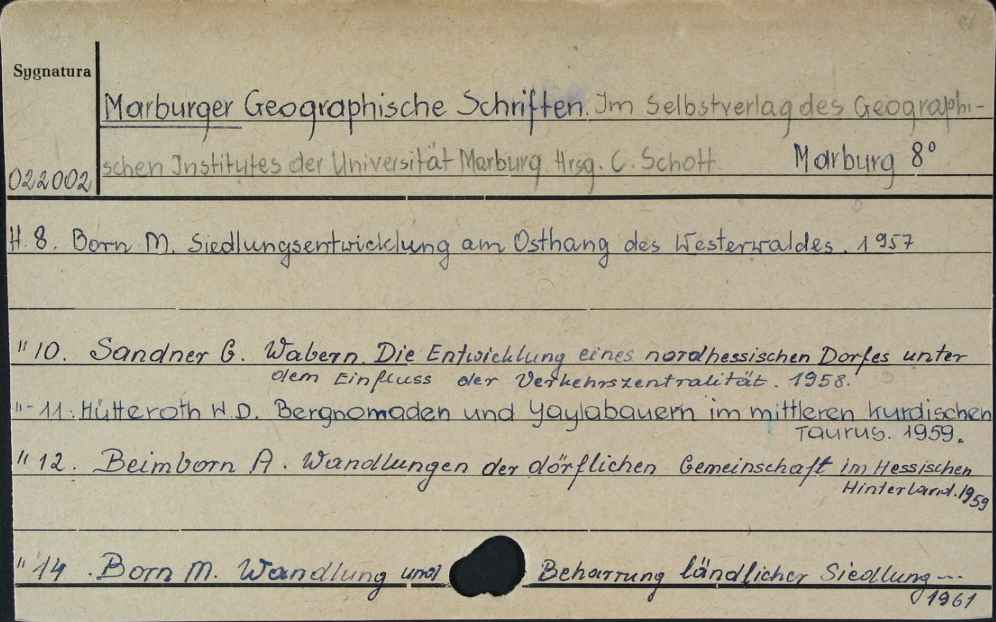 Sygnatura
Marburger Geographische Schriften. Im Selbstverlag des Geographi-
schen Institutes der Universität Marburg Hrsg. C. Schott. Marburg 8°
022002
H. 8. Born M. Siedlungsentwicklung am Osthang des Westerwaldes. 1957
" 10. Sandner G. Wabern. Die Entwicklung eines nordhessischen Dorfes unter
dem Einfluss der Verkehrszentralität. 1958.
"- 11. Hütteroth W.D. Bergnomaden und Yaylabauern im mittleren kurdischen
Taurus. 1959.
" 12. Beimborn A. Wandlungen der dörflichen Gemeinschaft im Hessischen
Hinterland. 1959
" 14. Born M. Wandlung und Beharrung ländlicher Siedlung...
1961